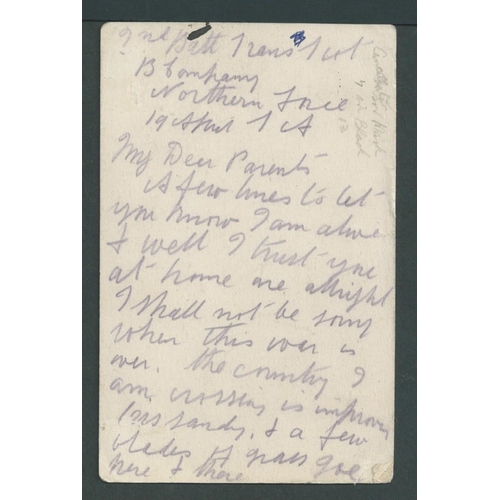 2nd Batt Trans Scot
B Company
Northern Force
19 April
My Dear Parents
A few lines to let
you know I am alive
& well I trust you
at home are allright
I shall not be sorry
when this war is
over. The country I
am crossing is improving
less sandy, & a few
blades of grass
here & there